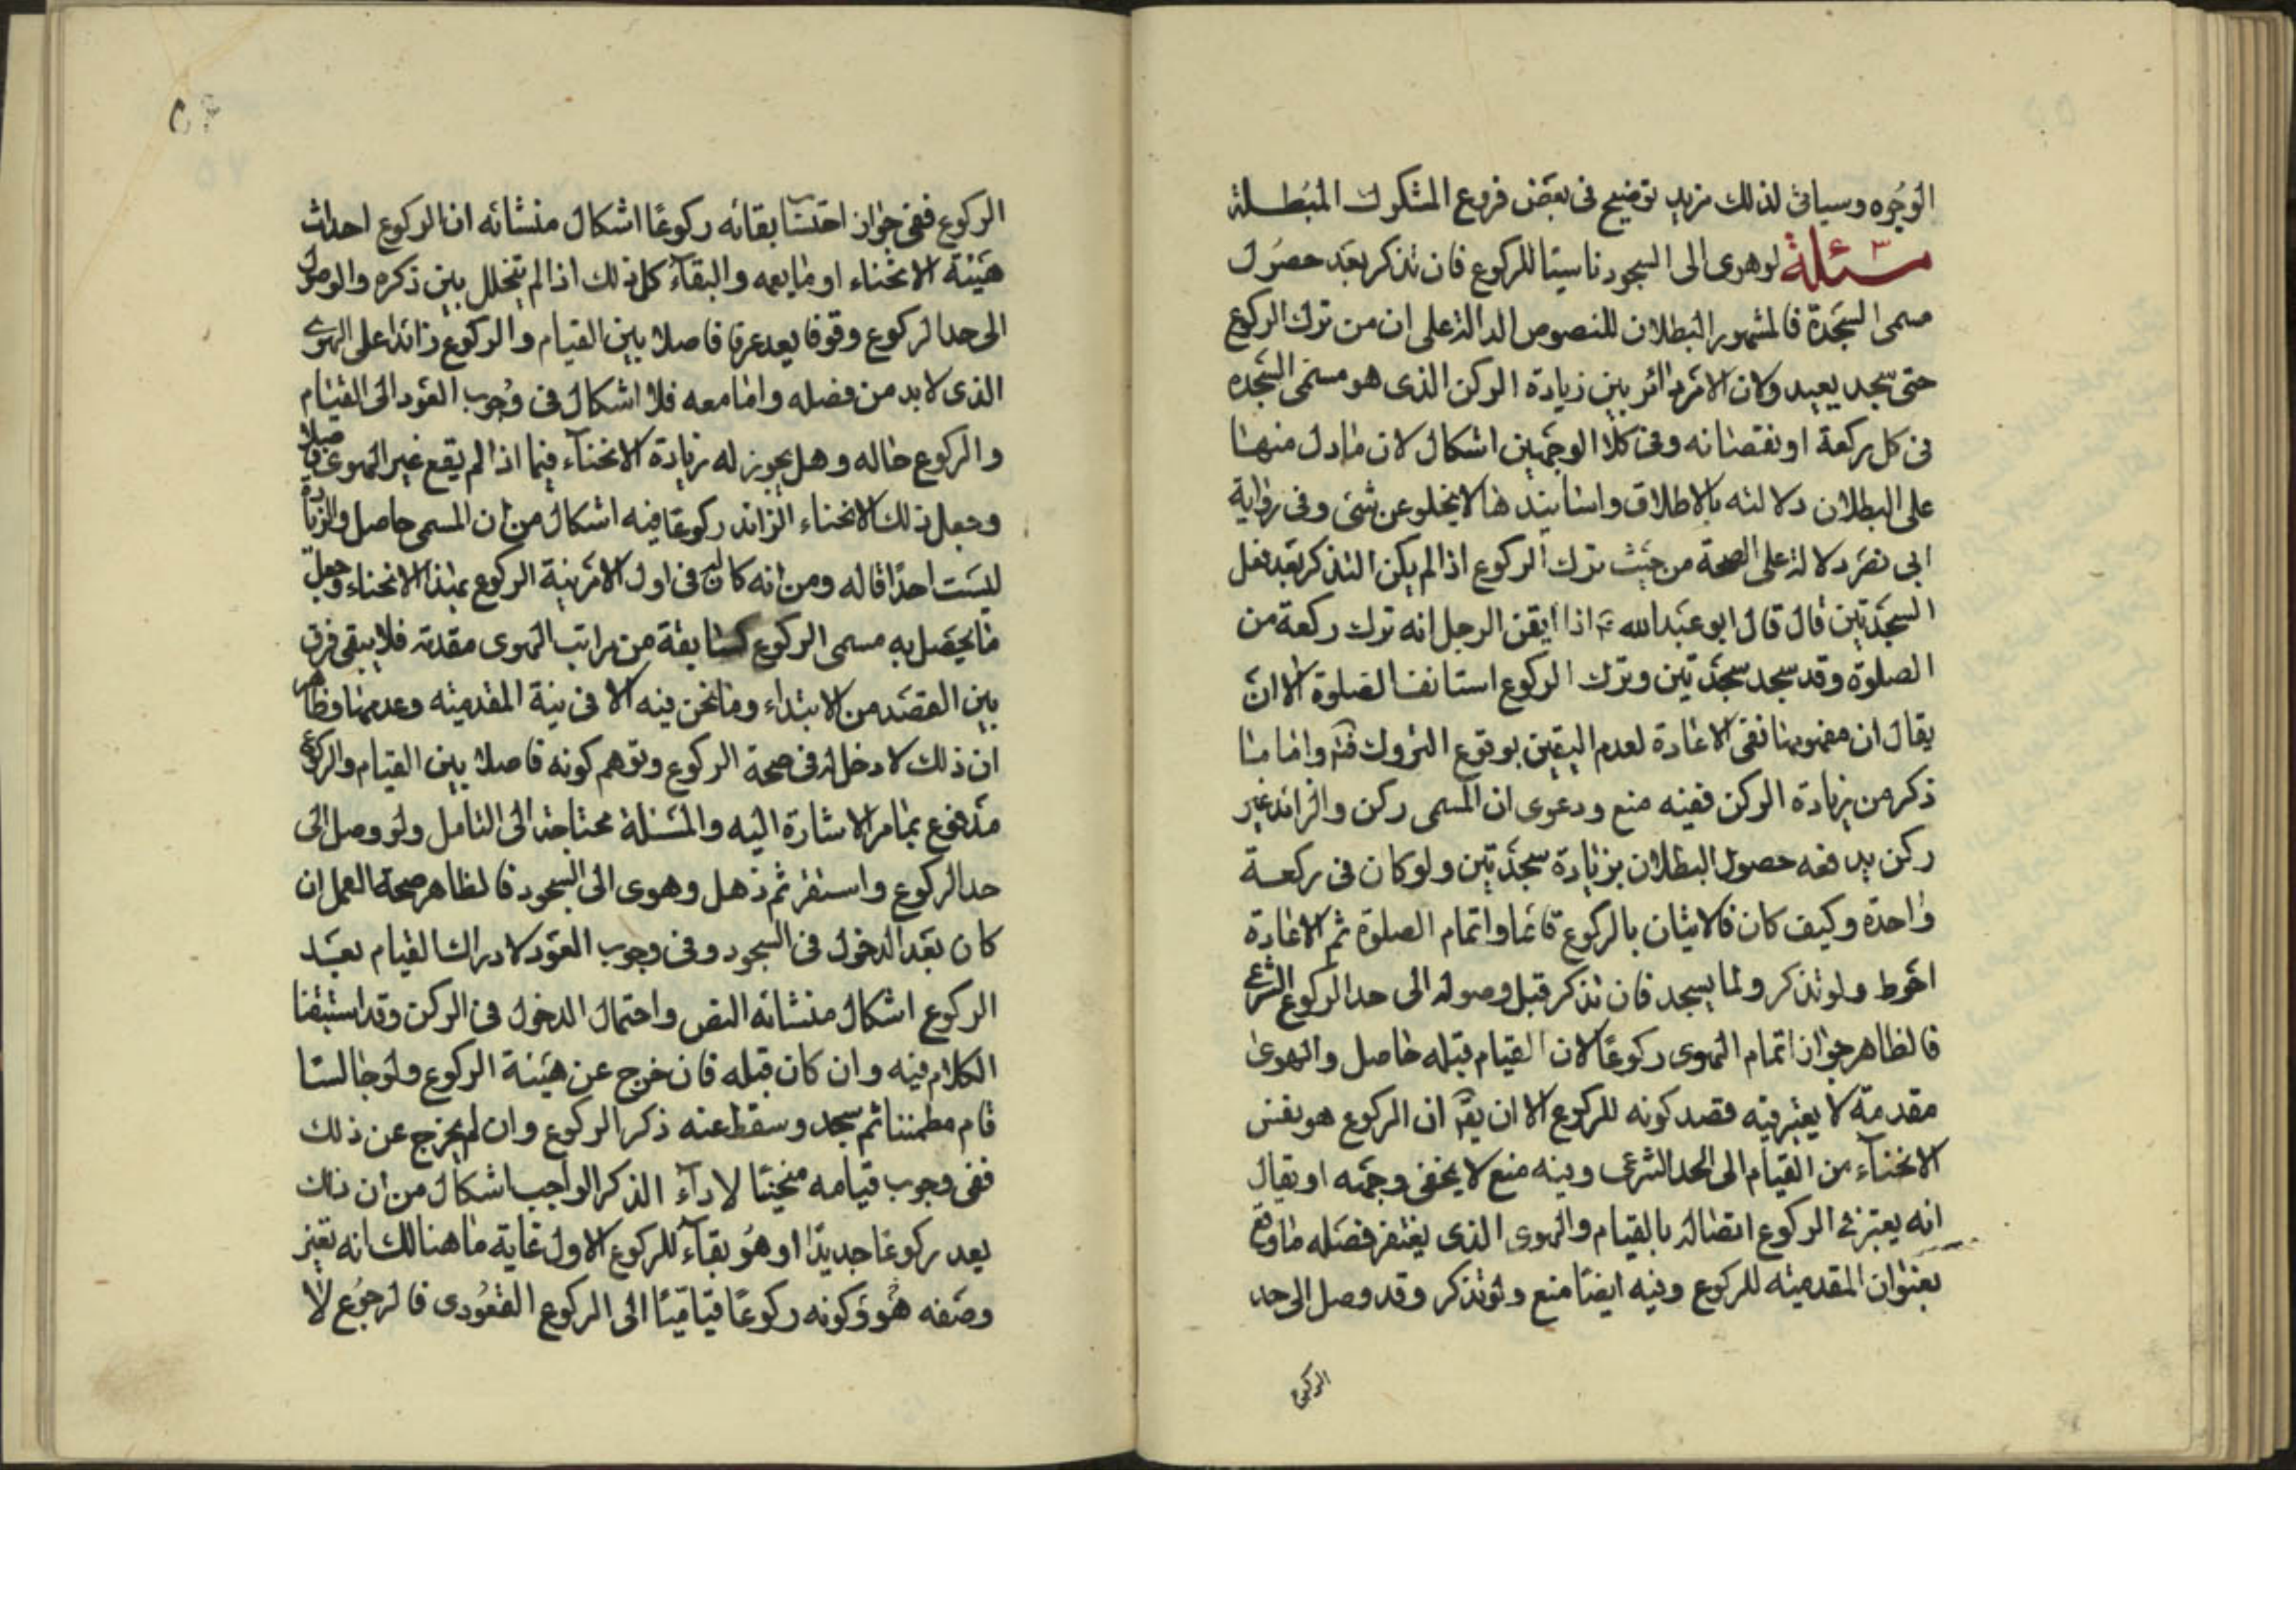 الوجوه وسياتى لذلك مزيد توضيح فى بعض فروع الشكوك المبطلة
مسئلة ٣ لو هوى الى السجود ناسيا للركوع فان تذكر بعد حصول
مسمى السجدة فالمشهور البطلان للنصوص الدالة على ان من ترك الركوع
حتى سجد يعيد ولان الامر دائر بين زيادة الركن الذى هو مسمى السجدة
فى كل ركعة او نقصانه وفى كلا الوجهين اشكال لان ما دل منها
على البطلان دلالته بالاطلاق واسانيدها لا يخلو عن شئ وفى رواية
ابى بصير دلالة على الصحة من حيث ترك الركوع اذا لم يكن التذكر بعد فعل
السجدتين قال قال ابو عبد الله ع اذا ايقن الرجل انه ترك ركعة من
الصلوة وقد سجد سجدتين وترك الركوع استانف الصلوة الا ان
يقال ان مفهومها نفى الاعادة لعدم اليقين بوقوع التروك واما ما
ذكر من زيادة الركن ففيه منع ودعوى ان المسمى ركن والزائد غير
ركن يدفعه حصول البطلان بزيادة سجدتين ولو كان فى ركعة
واحدة وكيف كان فالاتيان بالركوع قائما واتمام الصلوة ثم الاعادة
احوط ولو تذكر ولما يسجد فان تذكر قبل وصوله الى حد الركوع الشرعى
فالظاهر جواز اتمام الهوى ركوعا لان القيام قبله حاصل والهوى
مقدمة لا يعتبر فيه قصد كونه للركوع الا ان يق ان الركوع هو نفس
الانحناء من القيام الى الحد الشرعى وفيه منع لا يخفى وجهه او يقال
انه يعتبر فى الركوع اتصاله بالقيام والهوى الذى يغتفر فصله ما وقع
بعنوان المقدميه للركوع وفيه ايضا منع ولو تذكر وقد وصل الى حد
الركوع
الركوع ففى جواز احتساب بقائه ركوعا اشكال منشائه ان الركوع احداث
هيئة الانحناء او ما يعمه والبقاء كل ذلك اذا لم يتخلل بين ذكره والوصول
الى حد الركوع وقوفا يعد عرفا فاصلا بين القيام والركوع زائدا على الهوى
الذى لا بد من فصله واما معه فلا اشكال فى وجوب العود الى القيام
والركوع حاله وهل يجوز له زيادة الانحناء فيما اذا لم يقع غير الهوى فاصلا
وجعل ذلك الانحناء الزائد ركوعا فيه اشكال من ان المسمى حاصل والزيادة
ليست احداثا له ومن انه كان له فى اول الامر نية الركوع بهذا الانحناء وجعل
ما يحصل به مسمى الركوع كسابقة من مراتب الهوى مقدمة فلا يبقى فرق
بين القصد من الابتداء وما نحن فيه الا فى نية المقدميته وعدمها وظاهر
ان ذلك لا دخل له فى صحة الركوع وتوهم كونه فاصلا بين القيام والركوع
مدفوع بما مر الاشارة اليه والمسئلة محتاجة الى التامل ولو وصل الى
حد الركوع واستقر ثم ذهل وهوى الى السجود فالظاهر صحة العمل ان
كان بعد الدخول فى السجود وفى وجوب العود لادراك القيام بعد
الركوع اشكال منشائه النص واحتمال الدخول فى الركن وقد استبقنا
الكلام فيه وان كان قبله فان خرج عن هيئة الركوع ولو جالسا
قام مطمئنا ثم سجد وسقط عنه ذكر الركوع وان لم يخرج عن ذلك
ففى وجوب قيامه منحنيا لاداء الذكر الواجب اشكال من ان ذلك
يعد ركوعا جديدا او هو بقاء للركوع الاول غاية ما هنالك انه تغير
وصفه هو وكونه ركوعا قياميا الى الركوع القعودى فالرجوع لا